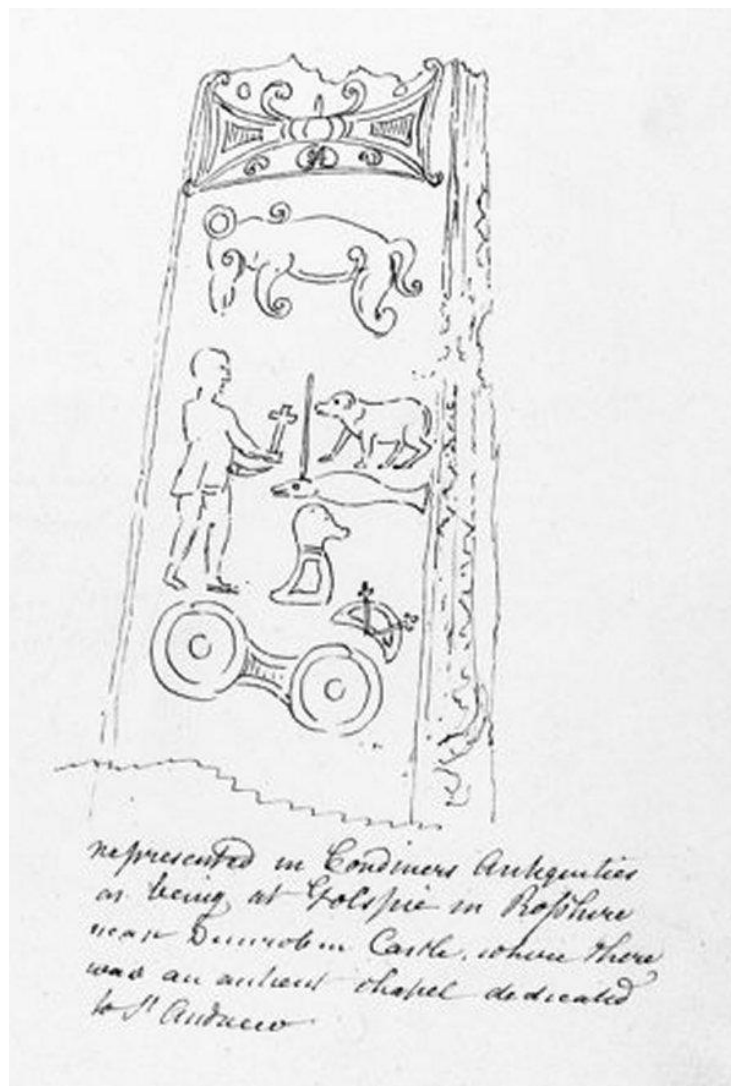 represented in Cordiners Antiquities
as being at Golspie in Roſshire
near Dunrobin Castle, where there
was an antient chapel dedicated
to St Andrew